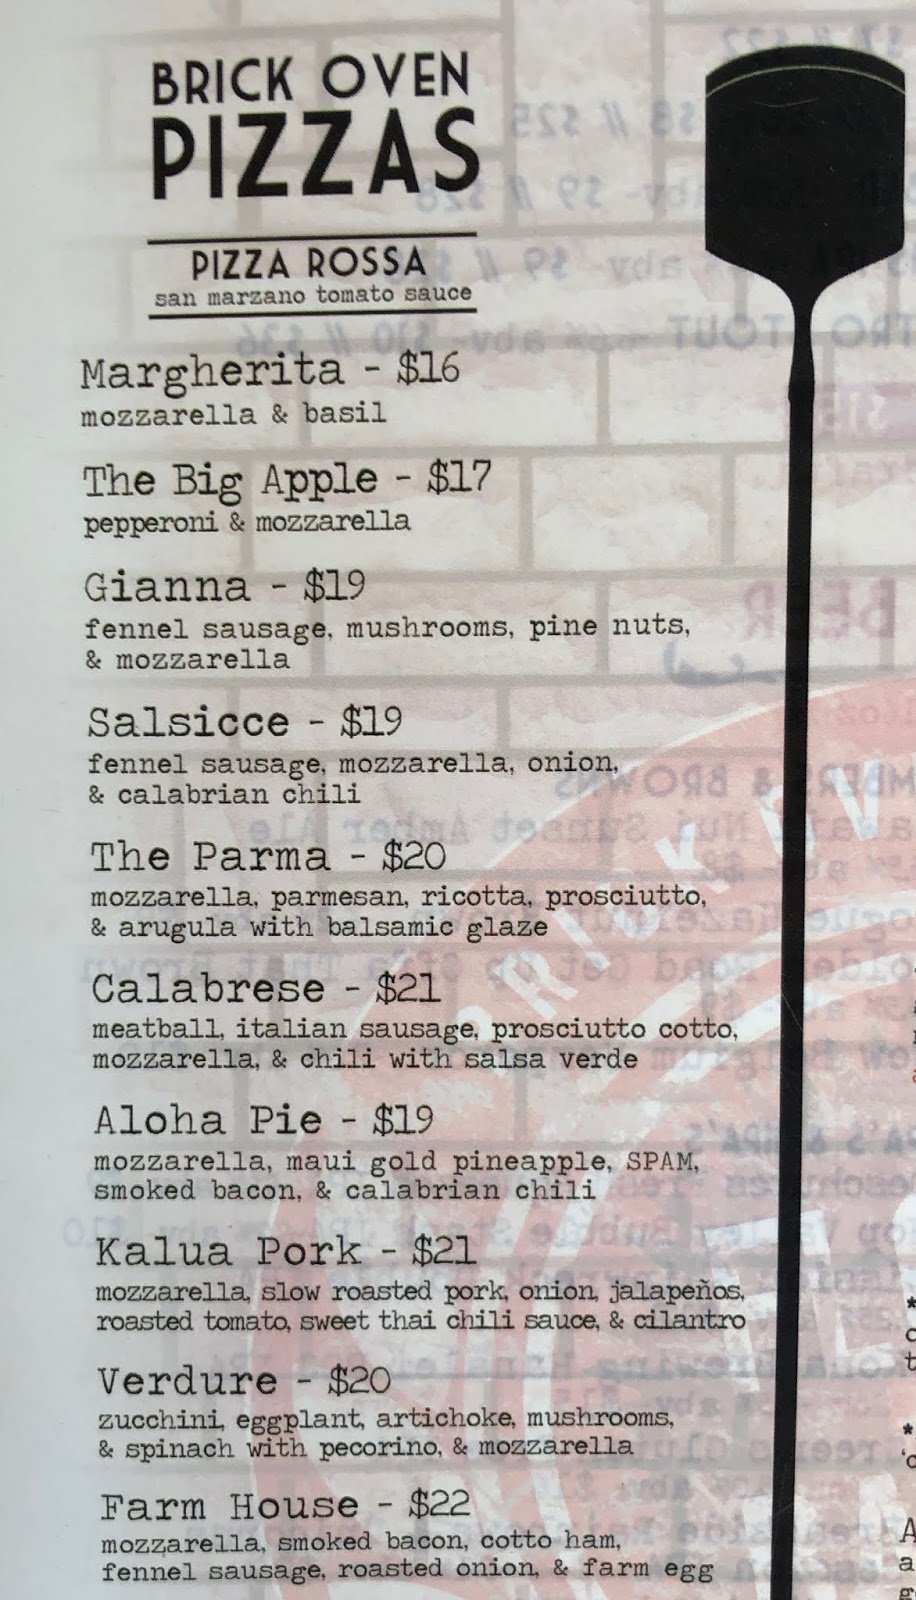 BRICK OVEN
PIZZAS
PIZZA ROSSA
san marzano tomato sauce
Margherita - $16
mozzarella & basil
The Big Apple - $17
pepperoni & mozzarella
Gianna - $19
fennel sausage, mushrooms, pine nuts,
& mozzarella
Salsicce - $19
fennel sausage, mozzarella, onion,
& calabrian chili
The Parma - $20
mozzarella, parmesan, ricotta, prosciutto,
& arugula with balsamic glaze
Calabrese - $21
meatball, italian sausage, prosciutto cotto,
mozzarella, & chili with salsa verde
Aloha Pie - $19
mozzarella, maui gold pineapple, SPAM,
smoked bacon, & calabrian chili
Kalua Pork - $21
mozzarella, slow roasted pork, onion, jalapeños,
roasted tomato, sweet thai chili sauce, & cilantro
Verdure - $20
zucchini, eggplant, artichoke, mushrooms,
& spinach with pecorino, & mozzarella
Farm House - $22
mozzarella, smoked bacon, cotto ham,
fennel sausage, roasted onion, & farm egg